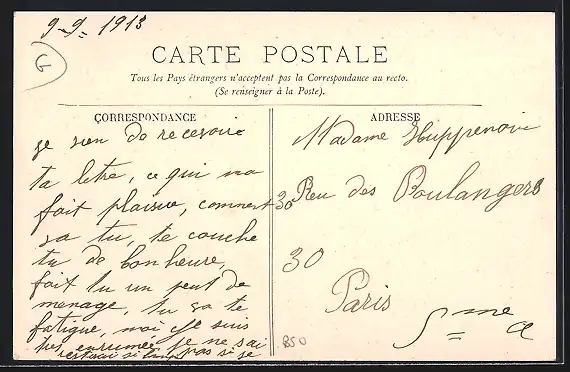 9-9-1913
CARTE POSTALE
Tous les Pays étrangers n'acceptent pas la Correspondance au recto.
(Se renseigner à la Poste).
CORRESPONDANCE
je vien de recevoir
ta letre, ce qui ma
fait plaisir, comment
va tu, te couche
tu de bonheure,
fait tu un peut de
menage, tu sa te
fatigue, moi je suis
tres enrumée je ne sai
pas si je
ADRESSE
Madame
30 Reu des Boulangers
30
Paris
850